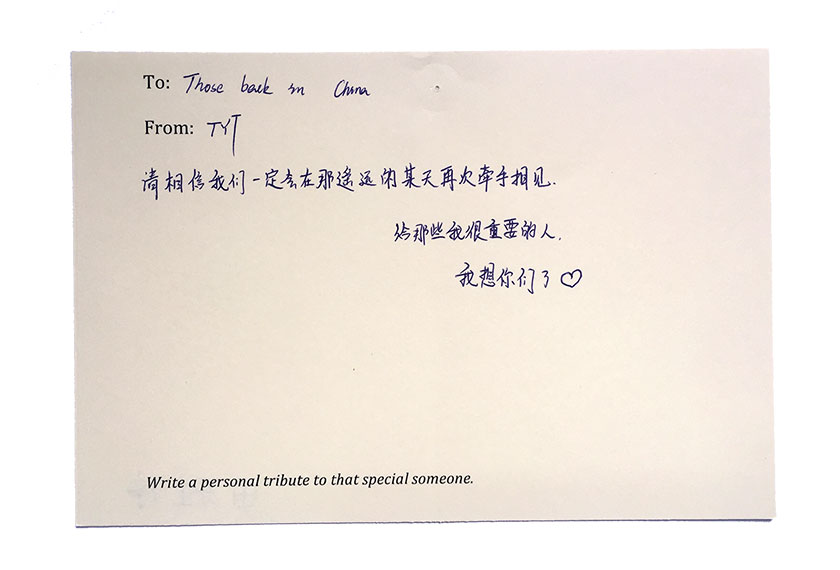 To: Those back in China
From: TYT
请相信我们一定会在那遥远的某天再次牵手相见.
给那些我很重要的人.
我想你们了♡
Write a personal tribute to that special someone.